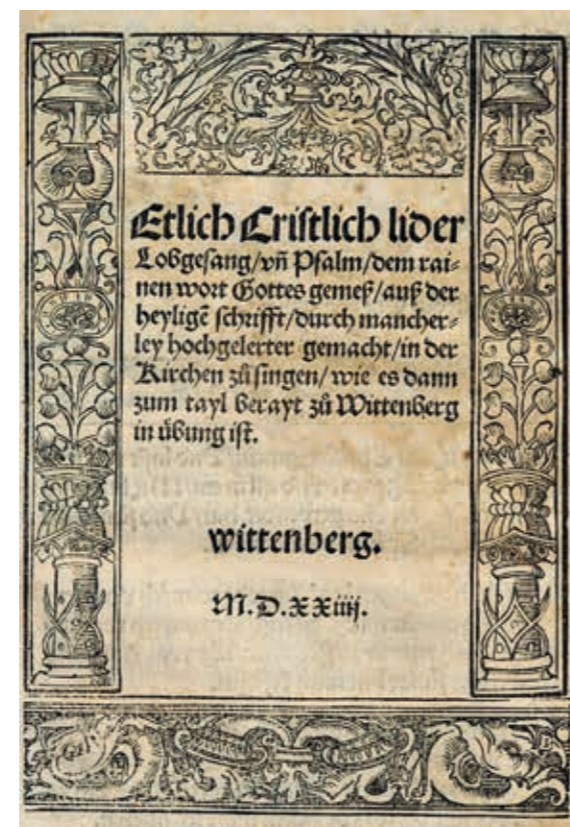 Etlich Cristlich lider
Lobgesang/vñ Psalm/dem rai⸗
nen wort Gottes gemeß/auß der
heyligē schrifft/durch mancher⸗
ley hochgelerter gemacht/in der
Kirchen zů singen/wie es dann
zum tayl berayt zů Wittenberg
in übung ist.
wittenberg.
M.D.XXiiij.